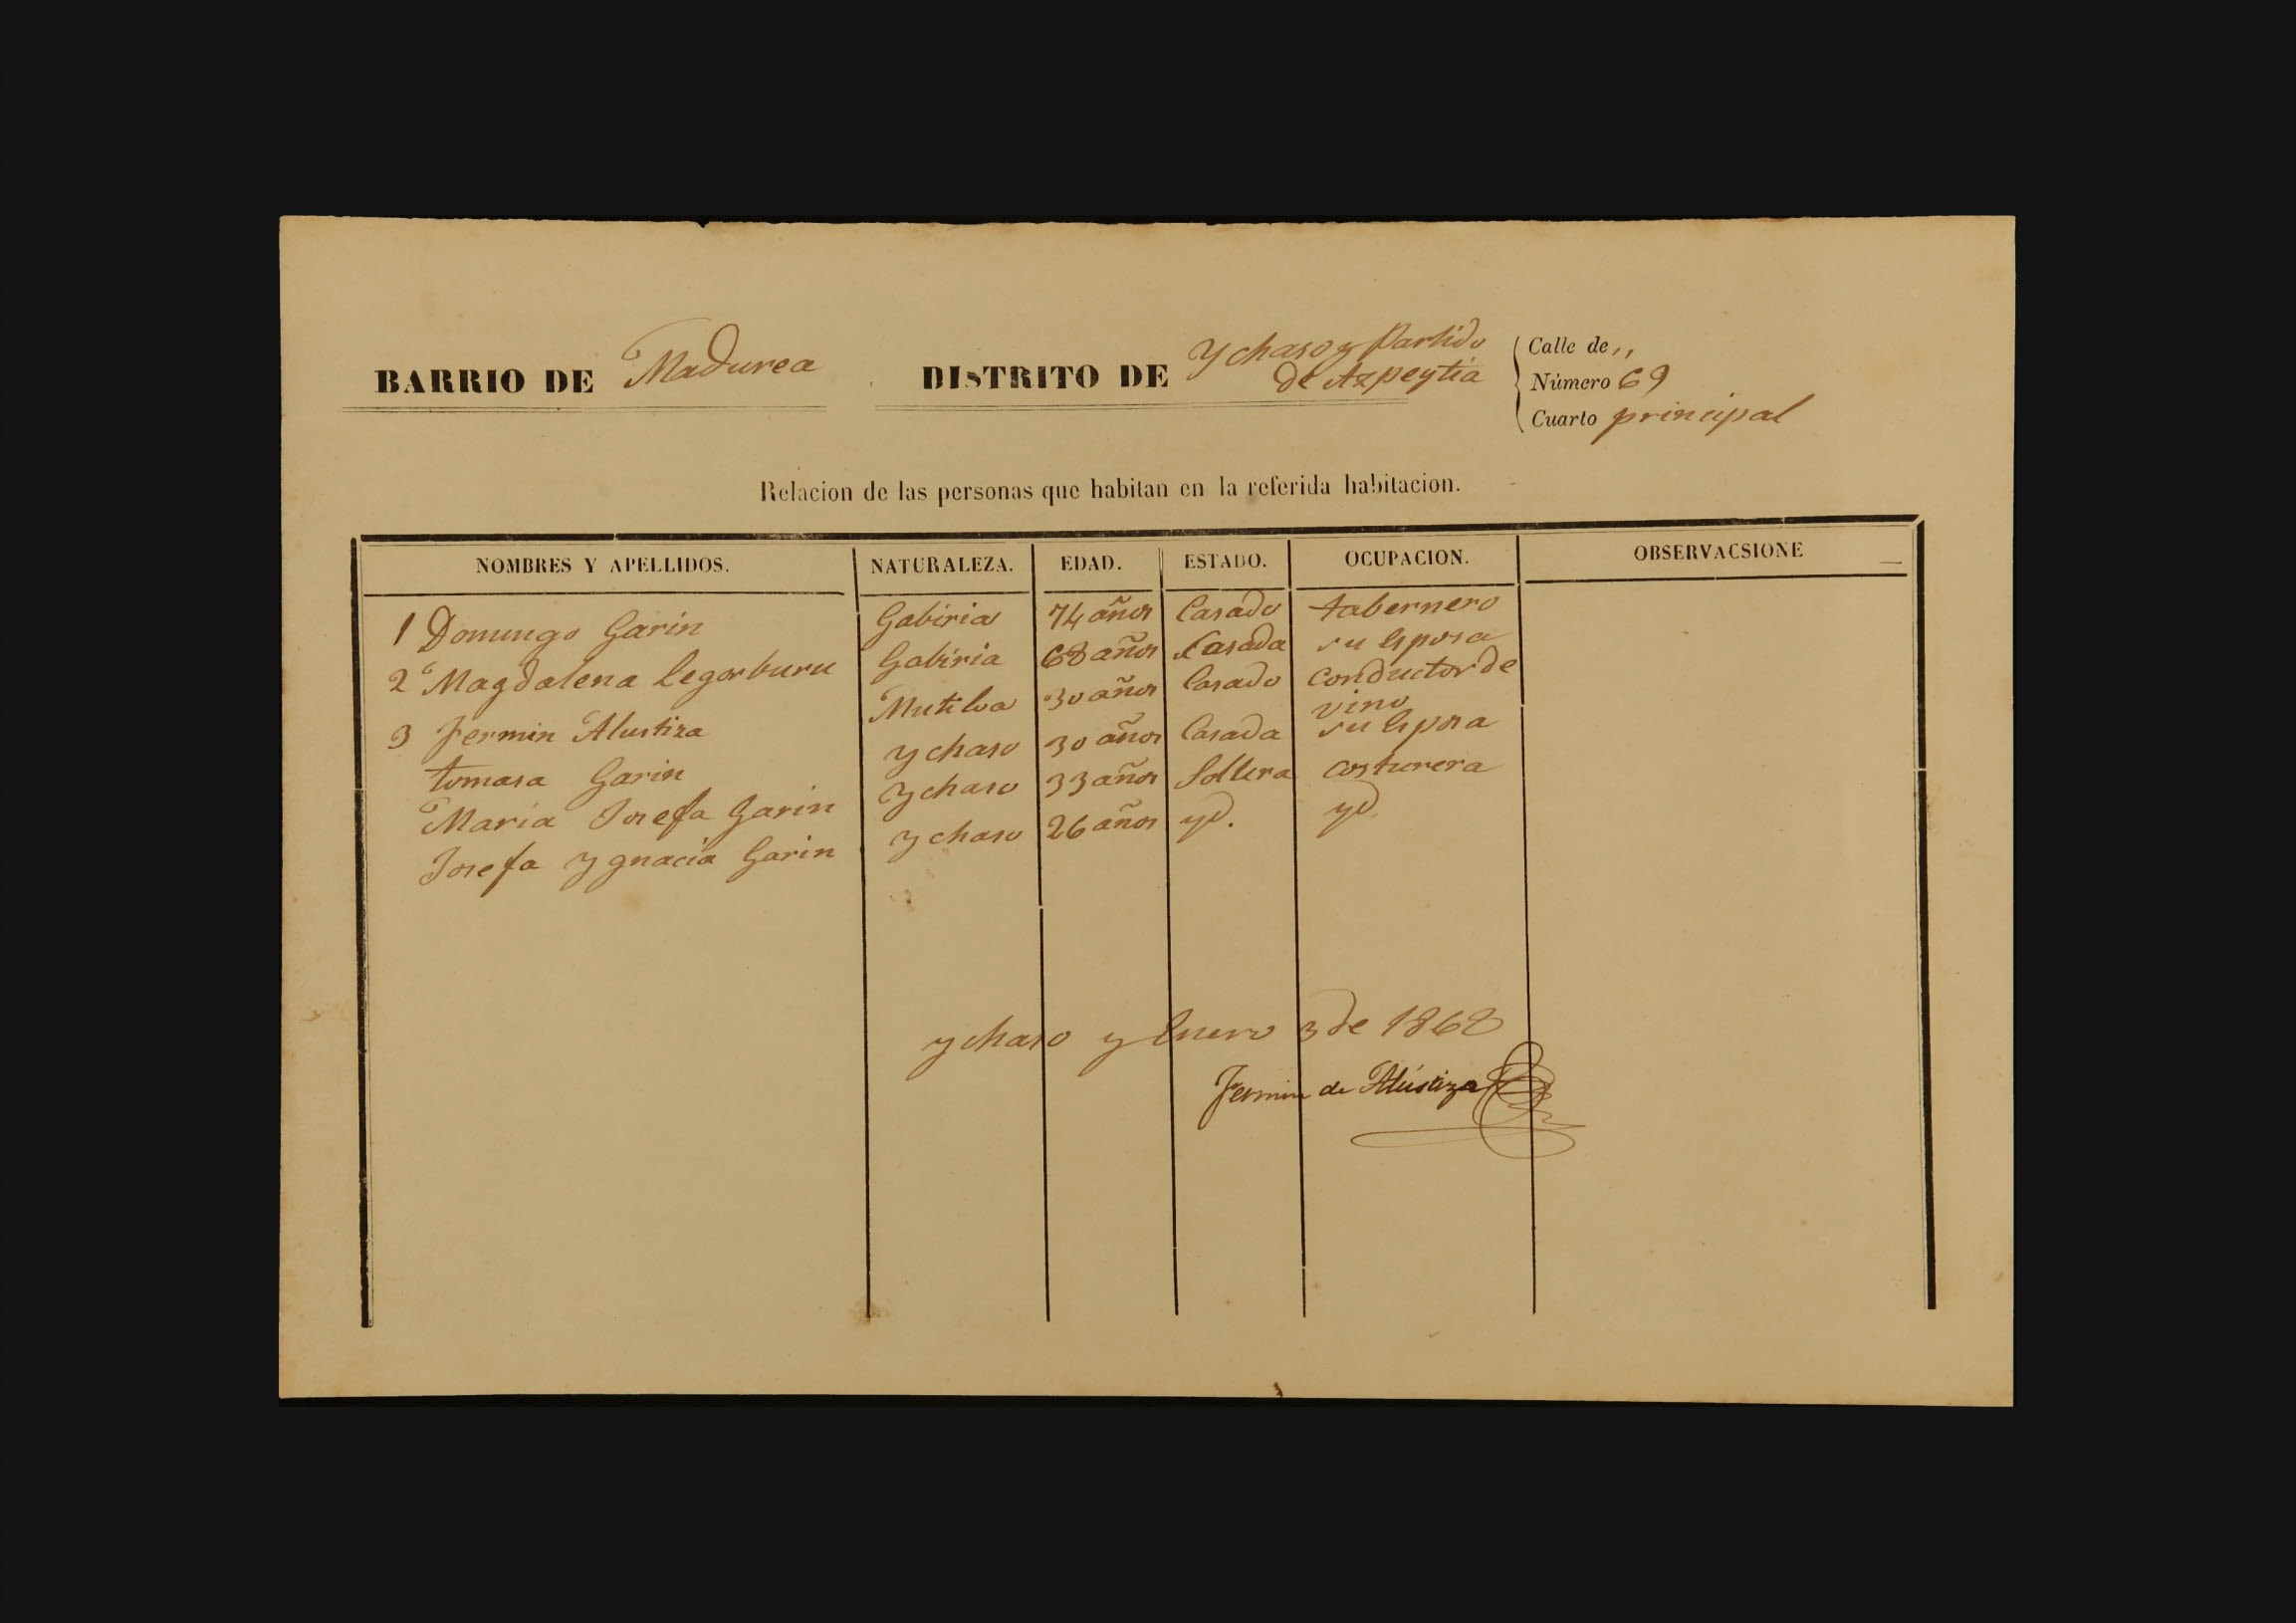 BARRIO DE Madurea DISTRITO DE Ychaso y Partido de Azpeytia
Calle de ,,
Número 69
Cuarto principal
Relacion de las personas que habitan en la referida habitacion.
NOMBRES Y APELLIDOS. NATURALEZA. EDAD. ESTADO. OCUPACION. OBSERVACSIONE
1 Domingo Garin Gabiria 74 años Casado tabernero
2 Magdalena Legorburu Gabiria 68 años Casada su esposa
3 Fermin Alustiza Mutiloa 30 años Casado conductor de vino
tomasa Garin ychaso 30 años Casada su esposa
Maria Josefa Garin ychaso 33 años Soltera costurera
Josefa Ygnacia Garin ychaso 26 años yd. yd.
ychaso y Enero 3 de 1868
Fermin de Alústiza